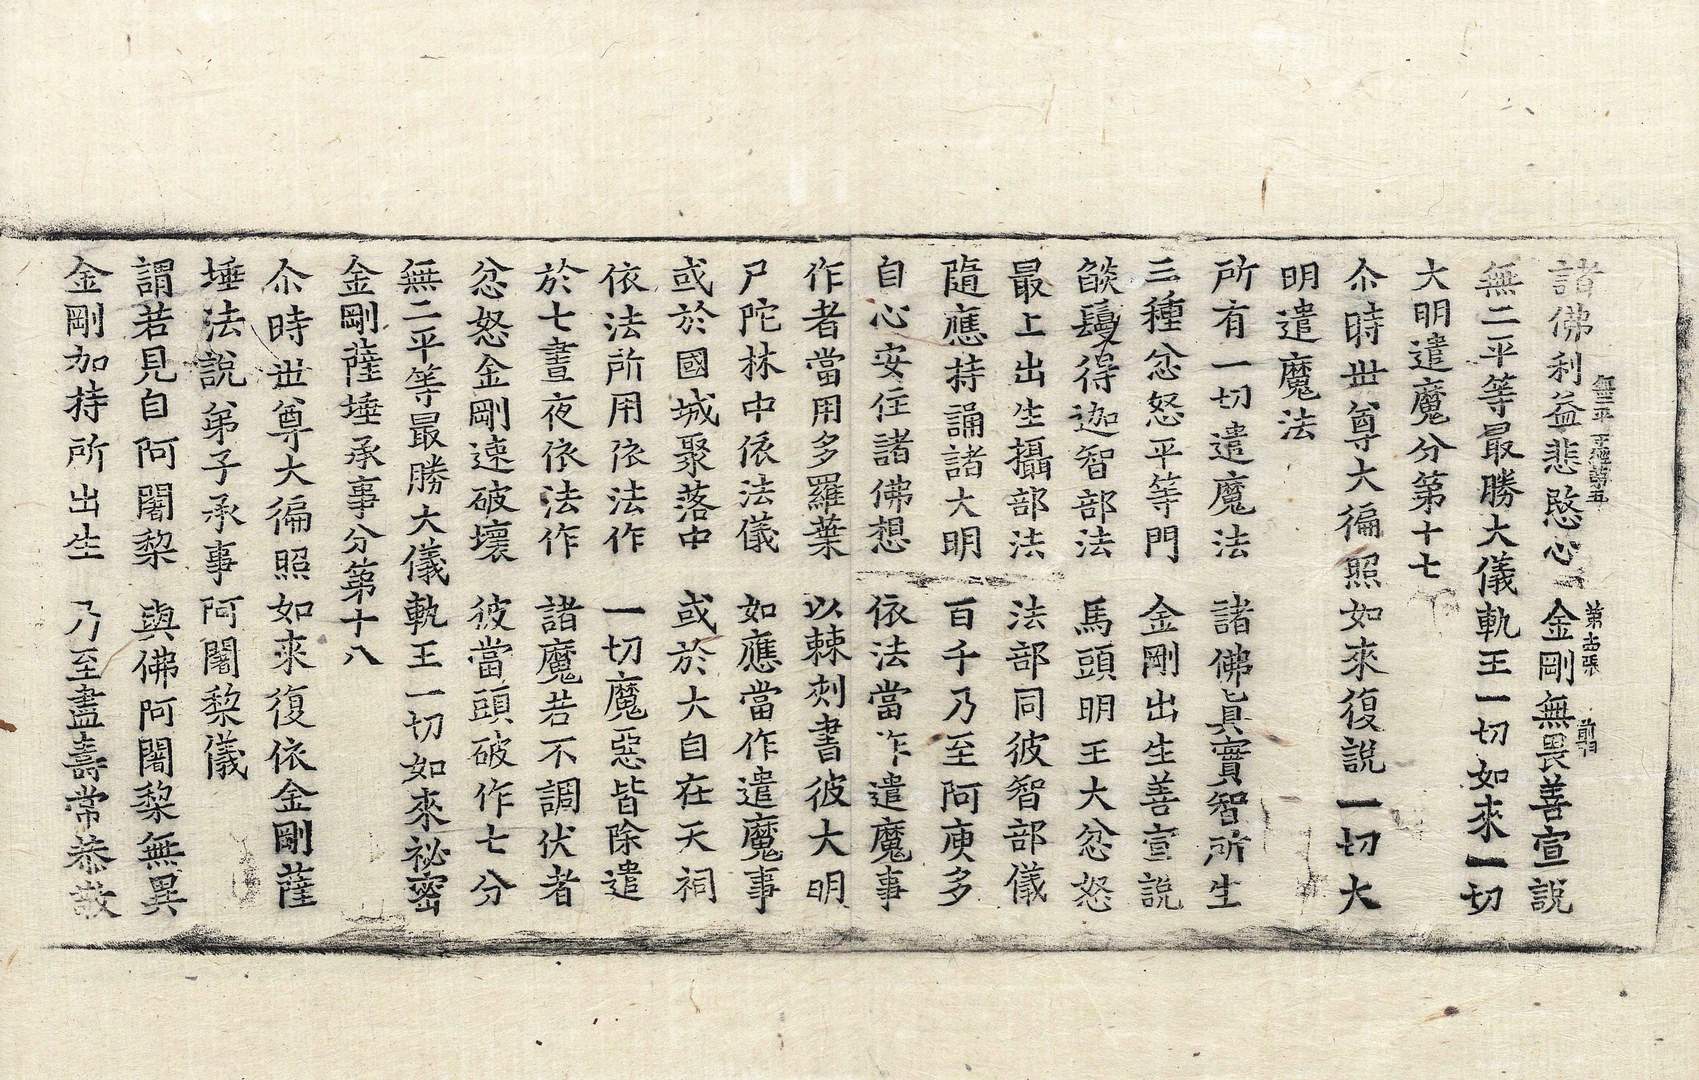 無二平等 卷第五 第十四張 前
諸佛利益悲愍心 金剛無畏善宣說
無二平等最勝大儀軌王一切如來一切
大明遣魔分第十七
尒時世尊大徧照如來復說一切大
明遣魔法
所有一切遣魔法 諸佛眞實智所生
三種忿怒平等門 金剛出生善宣說
燄鬘得迦智部法 馬頭明王大忿怒
最上出生攝部法 法部同彼智部儀
隨應持誦諸大明 百千乃至阿庾多
自心安住諸佛想 依法當作遣魔事
作者當用多羅葉 以棘刺書彼大明
尸陀林中依法儀 如應當作遣魔事
或於國城聚落中 或於大自在天祠
依法所用依法作 一切魔惡皆除遣
於七晝夜依法作 諸魔若不調伏者
忿怒金剛速破壞 彼當頭破作七分
無二平等最勝大儀軌王一切如來祕密
金剛薩埵承事分第十八
尒時世尊大徧照如來復依金剛薩
埵法說弟子承事阿闍梨儀
謂若見自阿闍梨 與佛阿闍梨無異
金剛加持所出生 乃至盡壽常恭敬